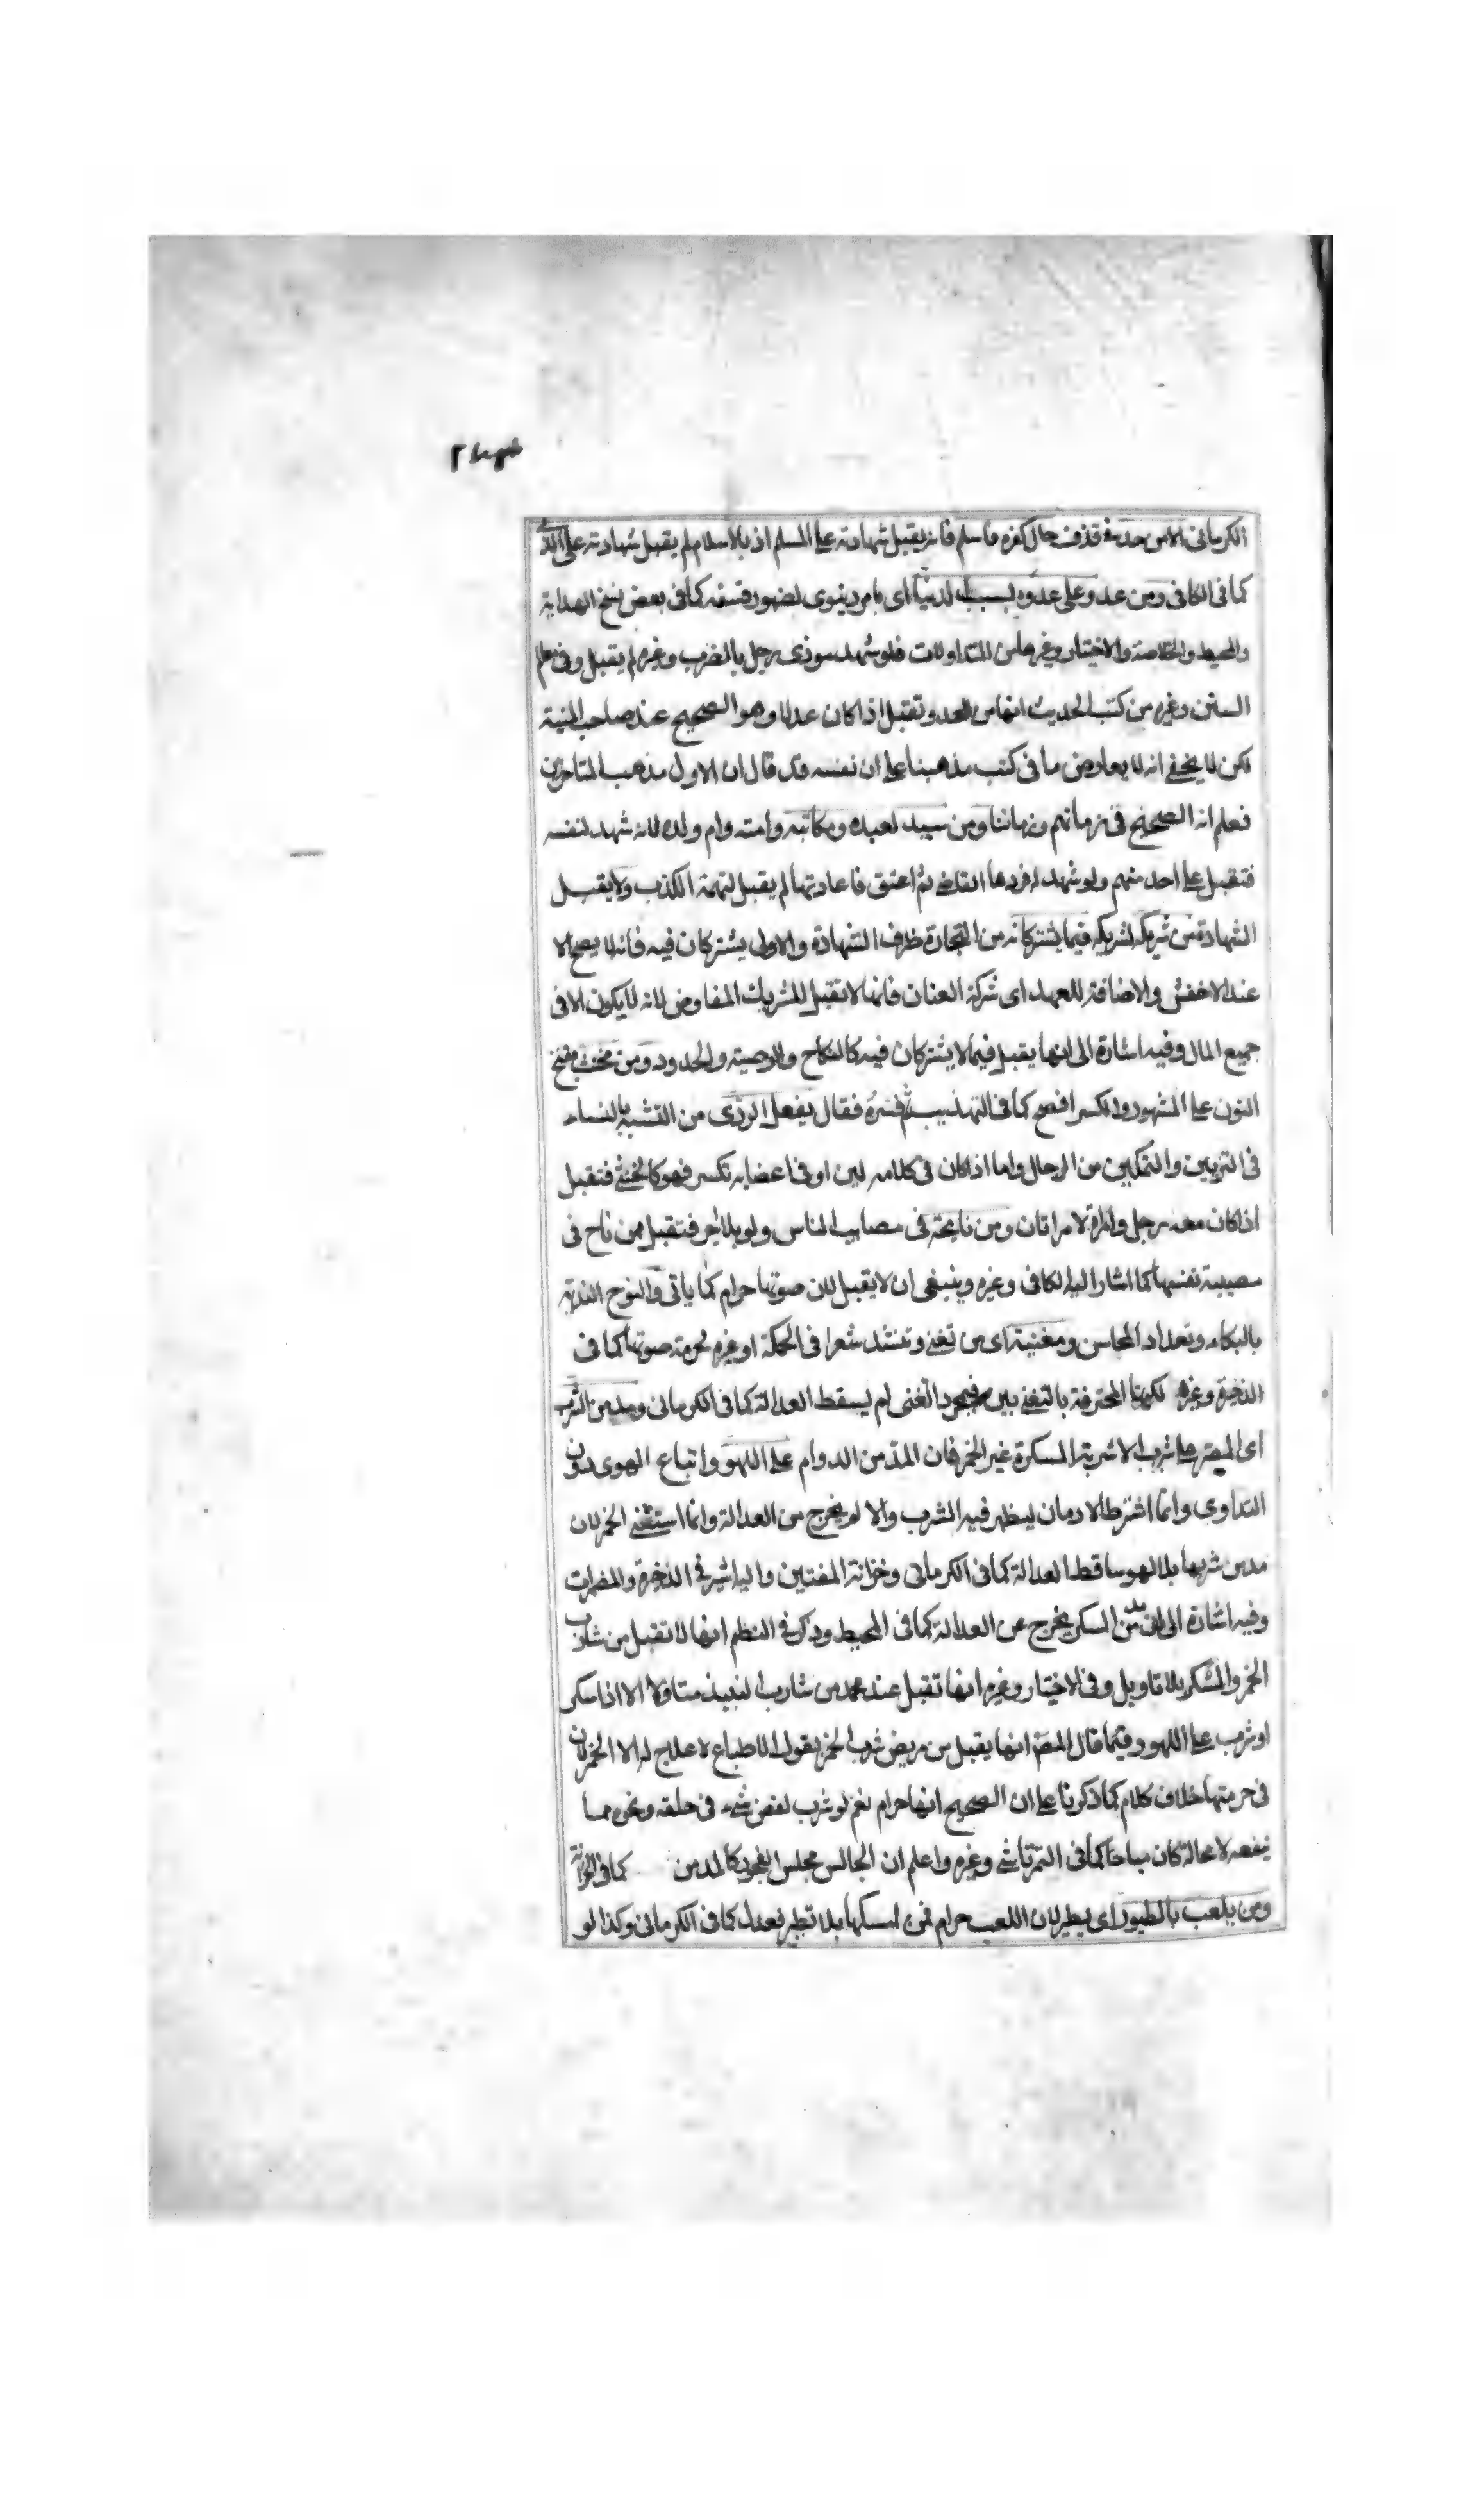 الكرمانى الا من حد فى قذف حال كفره فاسلم فانه يقبل شهادته على المسلم اذ بالاسلام لم يقبل شهادته على الذمى
كما فى الكافى ومن عدو على عدوه بسبب الدنيا اى بامر دنيوى لضهور فسقه كما فى بعض نسخ الهداية
والمحيط والخلاصة والاختيار وغيرها من المتداولات فلو شهد موذى رجل بالضرب وغيره لم يقبل وفى معالم
السنن وغيره من كتب الحديث انها من العدو تقبل اذا كان عدلا وهو الصحيح عند صاحب المنية
لكن لا يخفى انه لا يعارض ما فى كتب مذهبنا على ان نفسه قد قال ان الاول مذهب المتاخرين
فعلم انه الصحيح فى زمانهم وزماننا ومن سيد لعبده ومكاتبه وامته وام ولده لانه شهد لنفسه
فتقبل على احد منهم ولو شهد له فردها القاضى ثم اعتق فاعادتها لم يقبل لتهمة الكذب ولا يقبل
الشهادة من شريك لشريكه فيما يشتركانه من التجارة ظرف الشهادة والاولى يشتركان فيه فانه لا يصح الا
عند الاخفش والاضافة للعهد اى شركة العنان فانها لا تقبل للشريك المفاوض لانه لا يكون الا فى
جميع المال وفيه اشارة الى انها يقبل فيما لا يشتركان فيه كالنكاح والوصية والحدود ومن مخنث بفتح
النون على المشهور والكسر افصح كما فى التهذيب ثم فسره فقال يفعل الردى من التشبه بالنساء
فى التزيين والتمكين من الرجال واما اذا كان فى كلامه لين او فى اعضايه تكسر فهو كالخنثى فتقبل
اذا كان معه رجل وامراة لا مراتان ومن نايحة فى مصايب الناس ولو بلا اجر فتقبل ممن ناح فى
مصيبة نفسها كما اشار اليه الكافى وغيره وينبغى ان لا يقبل لان صوتها حرام كما ياتى والنوح الندبة
بالبكاء وتعداد المحاسن ومغنية اى من تغنى وتنشد شعرا فى الحكمة او غيره لحرمة صوتها كما فى
الذخيرة وغيره لكنها المحترفة بالتغنى بين فبمجرد التغنى لم يسقط العدالة كما فى الكرمانى ومدمن الشرب
اى المصر على شرب الاشربة المسكرة غير الخمر فان المدمن الدوام على اللهو واتباع الهوى دون
التداوى وانما اشترط الادمان ليظهر فيه الشرب والا لم يخرج من العدالة وانما استثنى الخمر لان
مدمن شربها بلا لهو ساقط العدالة كما فى الكرمانى وخزانة المفتين واليه اشير فى الذخيرة والمضمرات
وفيه اشارة الى ان مدمن السكر يخرج عن العدالة كما فى المحيط وذكر فى النظم انها لا تقبل من شارب
الخمر والمسكر بلا تاويل وفى الاختيار وغيره انها تقبل عند محمد من شارب النبيذ متاولا الا اذا سكر
او شرب على اللهو وفيما قال المصم انها يقبل من مريض شرب الخمر بقول الاطباء لا علاج له الا الخمر لان
فى حرمتها خلاف كلام كما ذكرنا على ان الصحيح انها حرام نعم لو شرب لغصن شىء فى حلقه ونحوه مما
ينفعه لا محالة كان مباحا كما فى التمرتاشى وغيره واعلم ان الجالس مجلس الفجور كالمدمن كما فى الخزانة
ومن يلعب بالطيور اى يطير لان اللعب حرام فمن امسكها بلا تطير يعدل كما فى الكرمانى وكذا لو